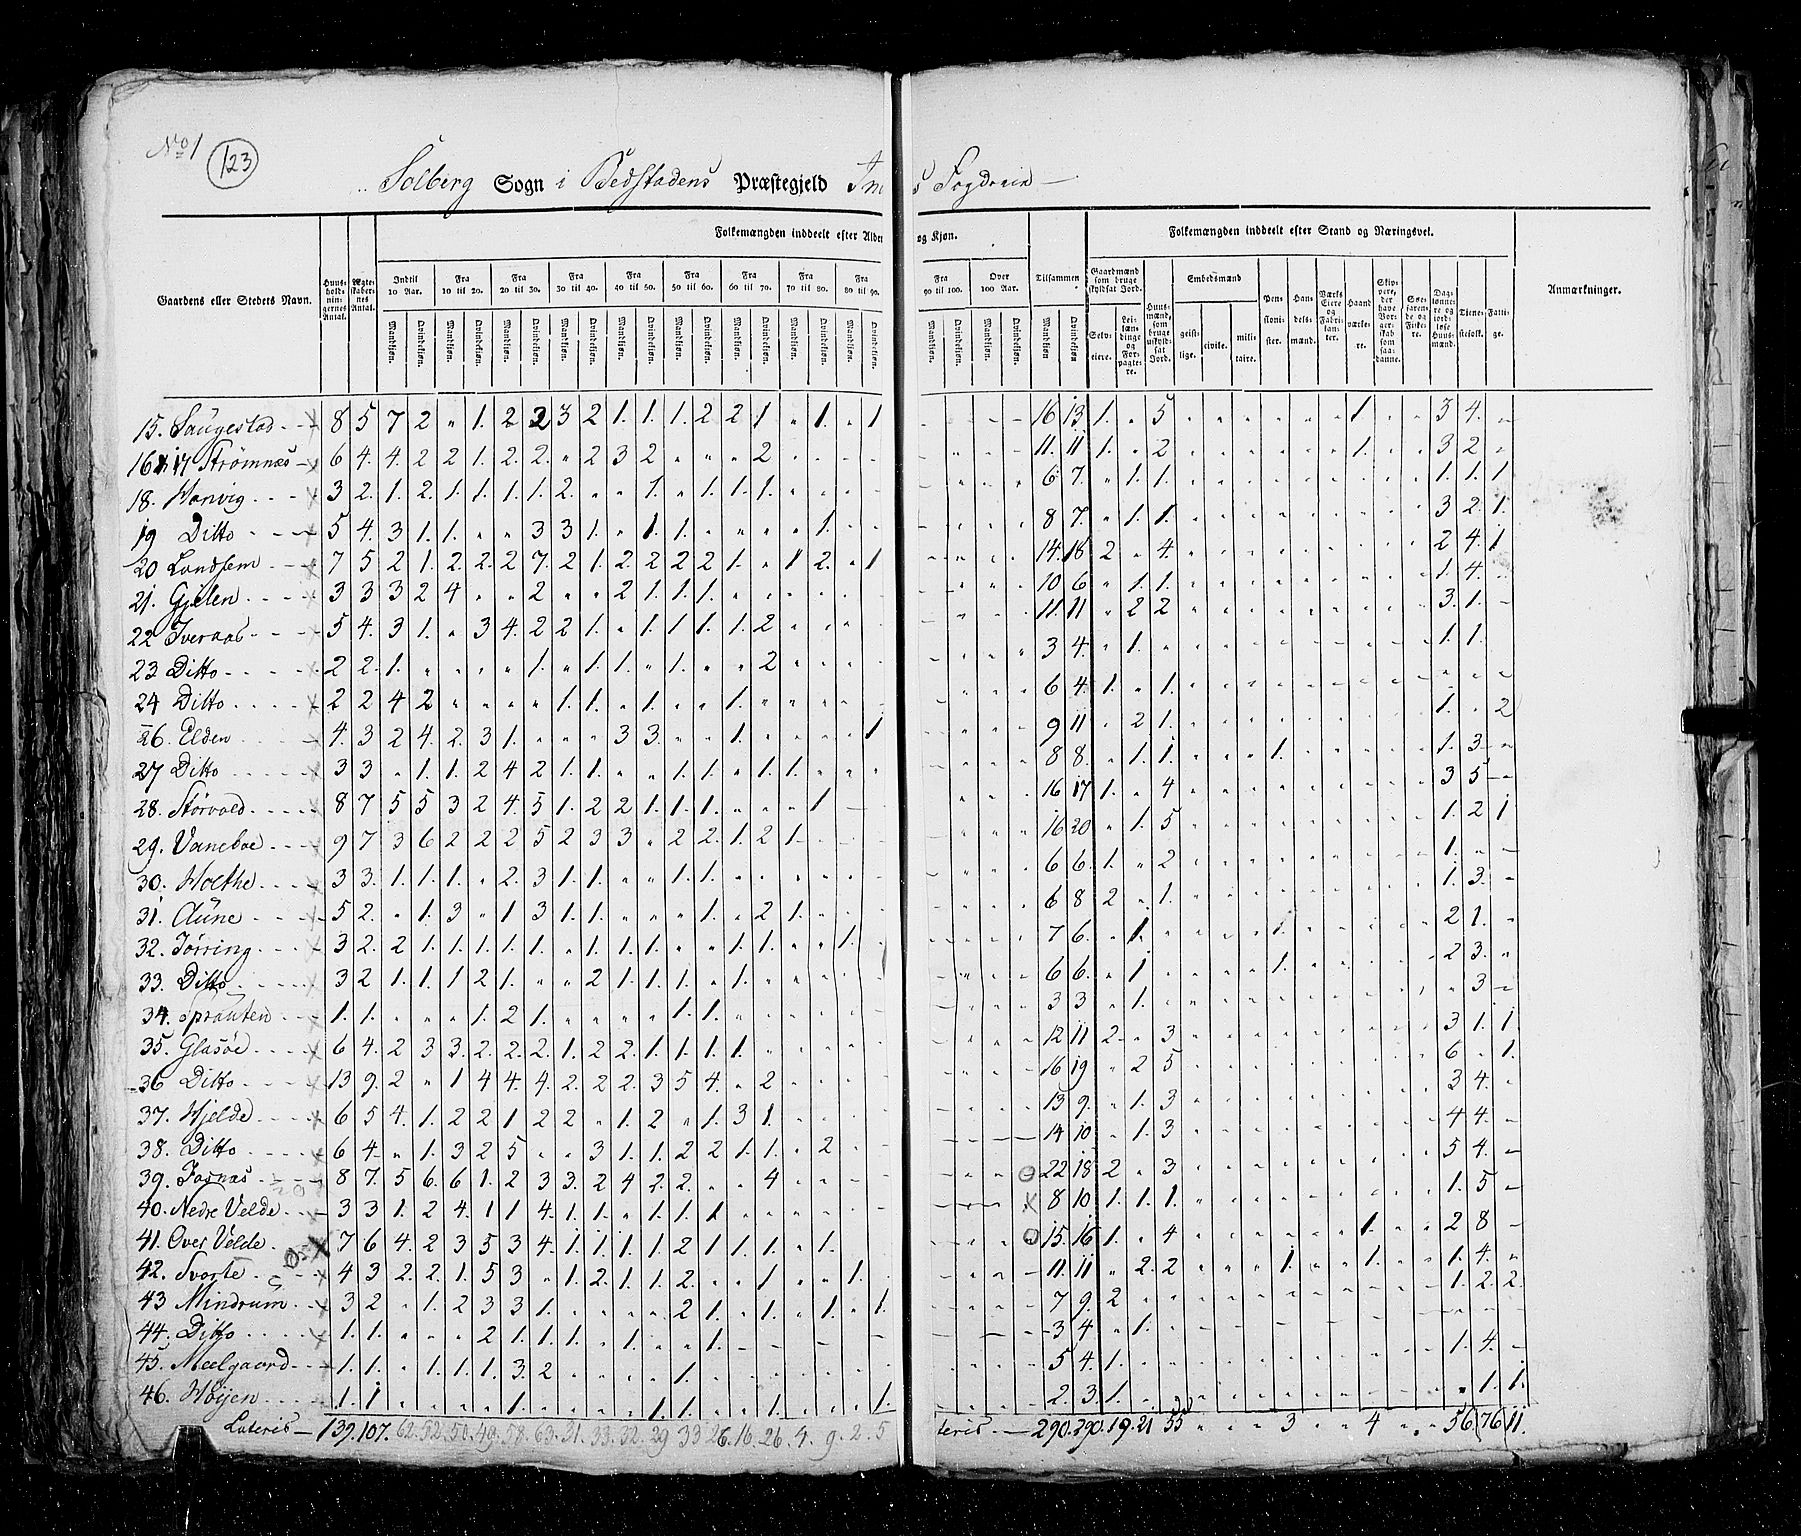 No 1 (123)
Solberg Sogn i Bedstadens Præstegjeld In s Fogderie
Gaardens eller Steders Navn.
Huus-hold-nin-gernes Antal.
Ægte-skaber-nes Antal.
Folkemængden inddeelt efter Alder og Kjøn.
Indtil 10 Aar. Fra 10 til 20. Fra 20 til 30. Fra 30 til 40. Fra 40 til 50. Fra 50 til 60. Fra 60 til 70. Fra 70 til 80. Fra 80 til 90. Fra 90 til 100. Over 100 Aar. Tilsammen
Mandkjøn. Qvindekjøn.
Folkemængden inddeelt efter Stand og Næringsvei.
Gaardmænd som bruge skyldsat Jord.
Selv-eiere. Lei-læn-dinge og For-pagte-re.
Huus-mænd, som bruge uskyld-sat Jord.
Embedsmænd
geist-lige. civile. mili-taire.
Pen-sioni-ster. Han-dels-mænd. Værks Eiere og Fabri-kan-ter. Haand værke-re. Skip-pere, der have Bor-ger-skab som saa-danne. Søe-farende og Fiske-re. Dag-lønne-re og jord-løse Huus-mænd. Tiene-stefolk. Fatti-ge.
Anmærkninger.
15. Saugestad 8 5 7 2 " 1. 2 2 3 2 1. 1. 1. 2 2 1 " 1. " 1 16 13 1. " 5 1 3 4.
16 17 Strømnæs 6 4. 4. 2 2 1. 2. 2. " 2 3 2 " " " 2 11. 11 1. " 2 1. 3 2
18. Hanvig 3 2. 1. 2. 1. 1. 1. 1. 2. " " 1. " 1. 1. 1. 6 7. " 1. 1. 1. 1. 1
19 Ditto 5 4. 3 1. 1. " " 3 3 1. " 1. 1. " " " " 1. 8 7. " 1. 1. 3 2 1.
20 Landsem 7 5 2 1. 2 2. 2 7. 2 1. 2. 2 2 2 1. " 1 2. " 1 14. 18 2 " 4. 2 4. 1
21. Gjelen 3 3 3 2 4 " " 2 " " 2 1. 1. 1. 10 6 " 1. 1. 1. 4.
22 Iveraas 5 4. 3 1. " 3 4. 2 2 1. " 1. 1. 1. 1. 2 11. 11 " 2 2 3. 1.
23 Ditto 2 2. 1. " " " " 1. " 1. 1. " 1. " " 2 3 4. " 1. 1. 1.
24 Ditto 2 2 4 2 " " " " 1. 1. " 1. " " 1. 6 4. 1. " 1.
26. Elden 4. 3 2 4. 2. 3 1. " " " 3 3. " " 1. " " " " 1 9 11 " 2 1. 1. " 2
27 Ditto 3 3 " 1. 1. 2 4 2 1. 1. " " 1. 1. " 1. 1. 8 8. " 1. 1. 1. 1. 3
28. Størvold 8 7 5 5 3 2 4. 5 1. 2 2 1. 1. 1. " " " 1 16 17 1. " 4 3 5
29. Vaneboe 9 7 3 6 2 2 2 5 2 3 3 " 2 2. 1. 2 1. 16 20 " 1. 5 1. 2 1
30. Holthe 3 3. 1. 1. 1. " 2. 3 1. 1. " " 1. 1. 6 6. 1. " 2 1.
31. Aune 5 2. " 1. 3 " 1 3 1. 1. " " " 1. " 2 1. 6 8 2 " 1. 1. 3.
32. Tørring 3 2. 2 1. 1. 1. 1. 1. " 1. 1. 1. " " 1. 1. " " 1. 7 6. " 1. 1. 2 1.
33. Ditto 3 2 1. 1. 1 2 1. " " 2 1. 1. 1. " 1. 6 6. " 1 1. 2 3.
34. Sprauten 1. 1. " " " 1. 2 1. " " " " 1. 1. 3 3 " 1. 3
35. Glasöe 6 4. 2 3 3. 2. 2. 2. 1. 2 2. 1. 1. 1. 1. 12 11 2 " 3 3 1. 1
36 Ditto 13 9. 2 " 1 4 4. 4. 2. 2 2. 3 5 4. " 2 16 19 " 2 5 6 " 1.
37. Hjelde 6 5 4. 1. 2 2 1 2 2 " 1. 2 " 1. 3 1. 13 9. " 1. 3 3 4.
38. Ditto 6 4. " 1. 3 2 5 " " 3 1. 1. 2 2 1. 1. " 2 14 10 " 1. 3 4 4.
39. Fosnæs 8 7. 5 6. 6 1. 2 3 3. 2 4 2. 2. " " 4 22 18 2 " 3 5 4.
40. Nedre Velde 3 3 1. 2 4. 1 1 4. 1. 1. " 1. 1. 1 8 10 1. 1. 1. 1. 5
41. Over Velde 7 6 4. 2 3 5 3 4. 1. 1. 1. 1. 2 1. 1. 1. " 1. 15. 16 1. " 4 1. 2 8
42. Svarte 4 3 2. 2. 1. 5 3 " 1. 2. 1. 1. 2. " " 1 " " 1. 11. 11 " 2. 2 1. 1. 1. 4.
43 Mindrum 3 2 " 1. 2 3 3 1. " " " " 2 1. " 1. " 1. " 1. 7 9. 2 1. 2. 2.
44. Ditto 1. 1. " " " 2 1. 1. 1. " 1. " " 1. 3 4 " 1.
45. Meelgaard 1. 1. " 1. 1. 1. 3. 2 " " " " 1. 5 4. 1. 1. 4.
46. Høijen 1. 1 " " " " 1. " " " " 1. 1. 1. " 1. " " " 1. 2. 3. 1. " 1. 1.
Lateris 139. 107. 62. 52. 50. 49. 58. 63. 31. 33. 32. 29 33 26. 16. 26. 4. 9. 2. 5 teris 290. 290. 19. 21 55 3 4 56. 76 11.